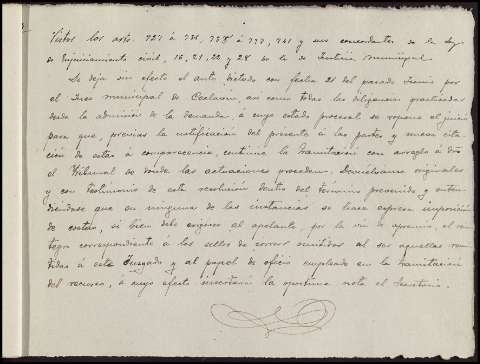 Vistos los arts. 727 á 731, 738 á 733, 741 y sus concordantes de la ley
de Enjuiciamiento civil, 16, 21, 22 y 28 de la de Justicia municipal
Se deja sin efecto el auto dictado con fecha 21 del pasado Junio por
el Juez municipal de Ceclavin, así como todas las diligencias practicadas
desde la admisión de la demanda, á cuyo estado procesal se repone el juicio
para que, previas la notificación del presente á las partes y nueva cita-
ción de estas á comparecencia, continúe la tramitación con arreglo á dro
el Tribunal de donde las actuaciones proceden. Devuélvanse originales
y con testimonio de esta resolución dentro del término prevenido y enten-
diéndose que en ninguna de las instancias se hace expresa imposición
de costas, si bien debe exigirse al apelante, por la vía de apremio, el rein-
tegro correspondiente á los sellos de correos omitidos al ser aquellas remi-
tidas á este Juzgado y al papel de oficio empleado en la tramitación
del recurso, á cuyo efecto insertará la oportuna nota el Secretario.